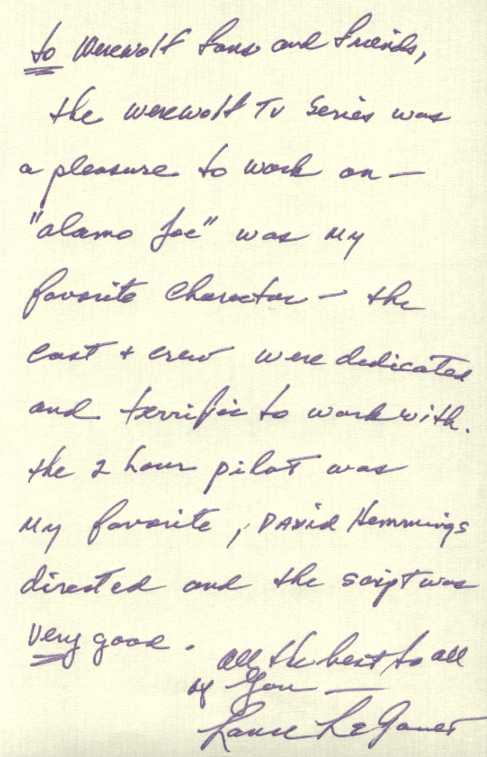 to Werewolf Fans and Friends,
the Werewolf TV Series was
a pleasure to work on —
"alamo Joe" was my
favorite Character — the
cast + crew were dedicated
and terrific to work with.
the 2 hour pilot was
My favorite, DAVID Hemmings
directed and the script was
Very good.
all the best to all
of You —
Lance LeGault